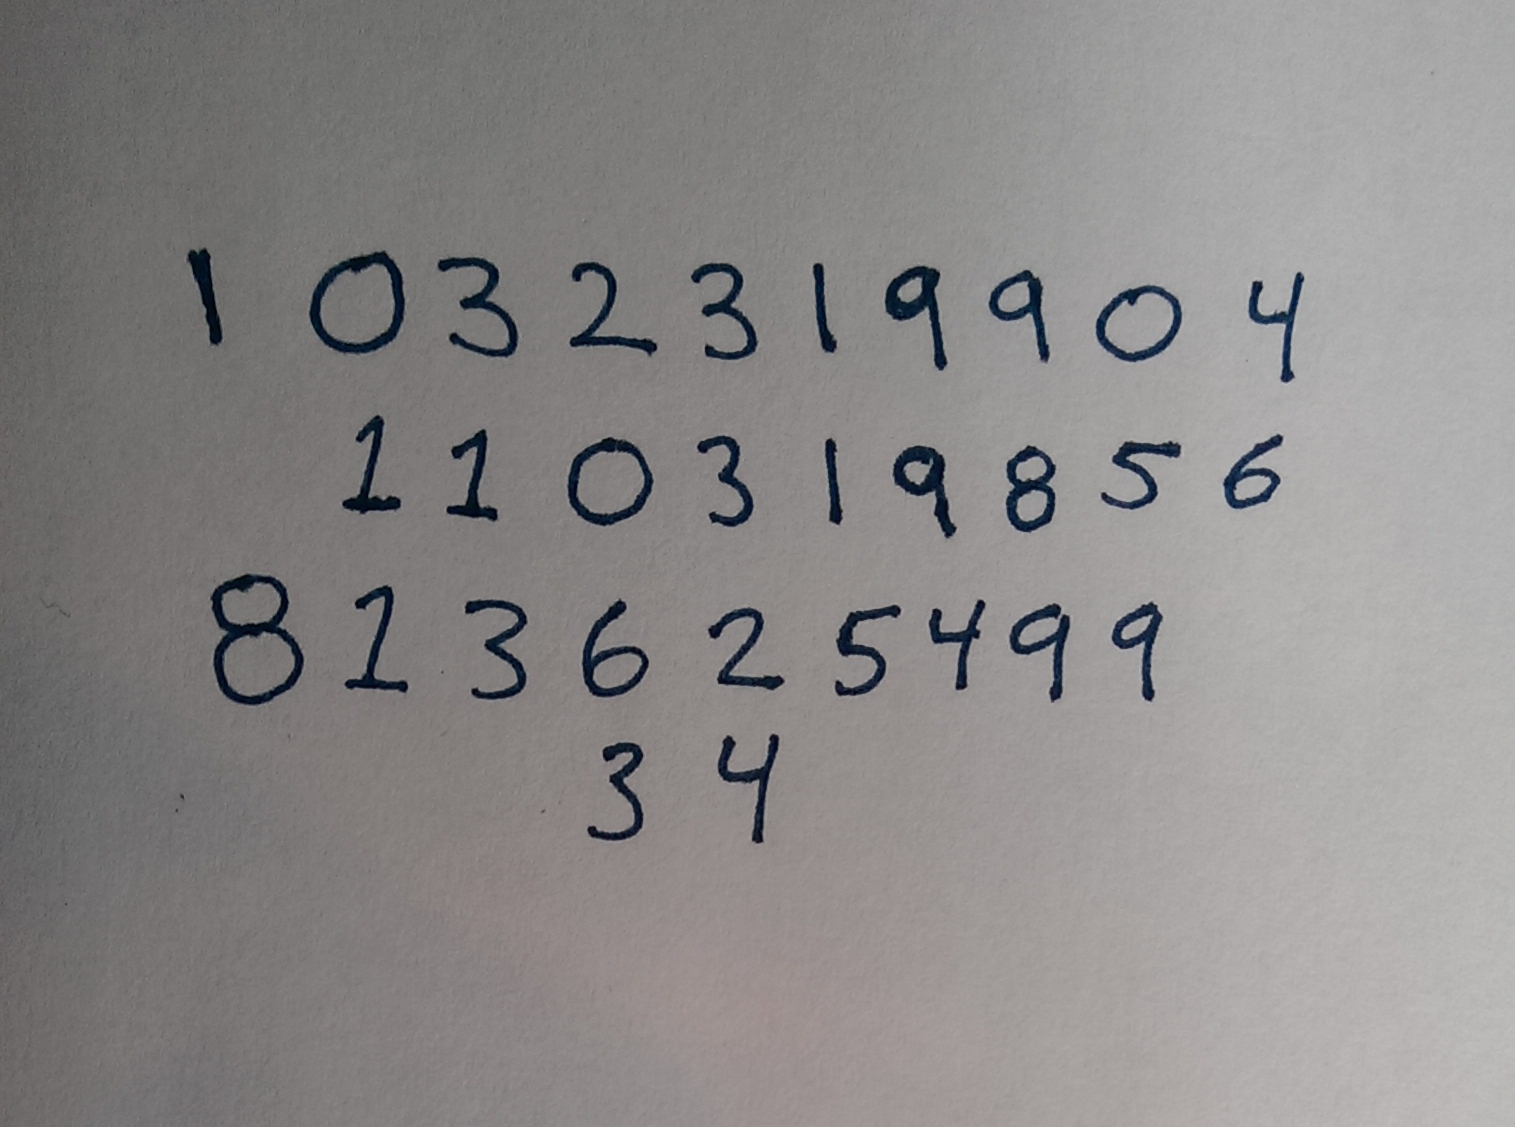 1 0 3 2 3 1 9 9 0 4
1 1 0 3 1 9 8 5 6
8 1 3 6 2 5 4 9 9
3 4